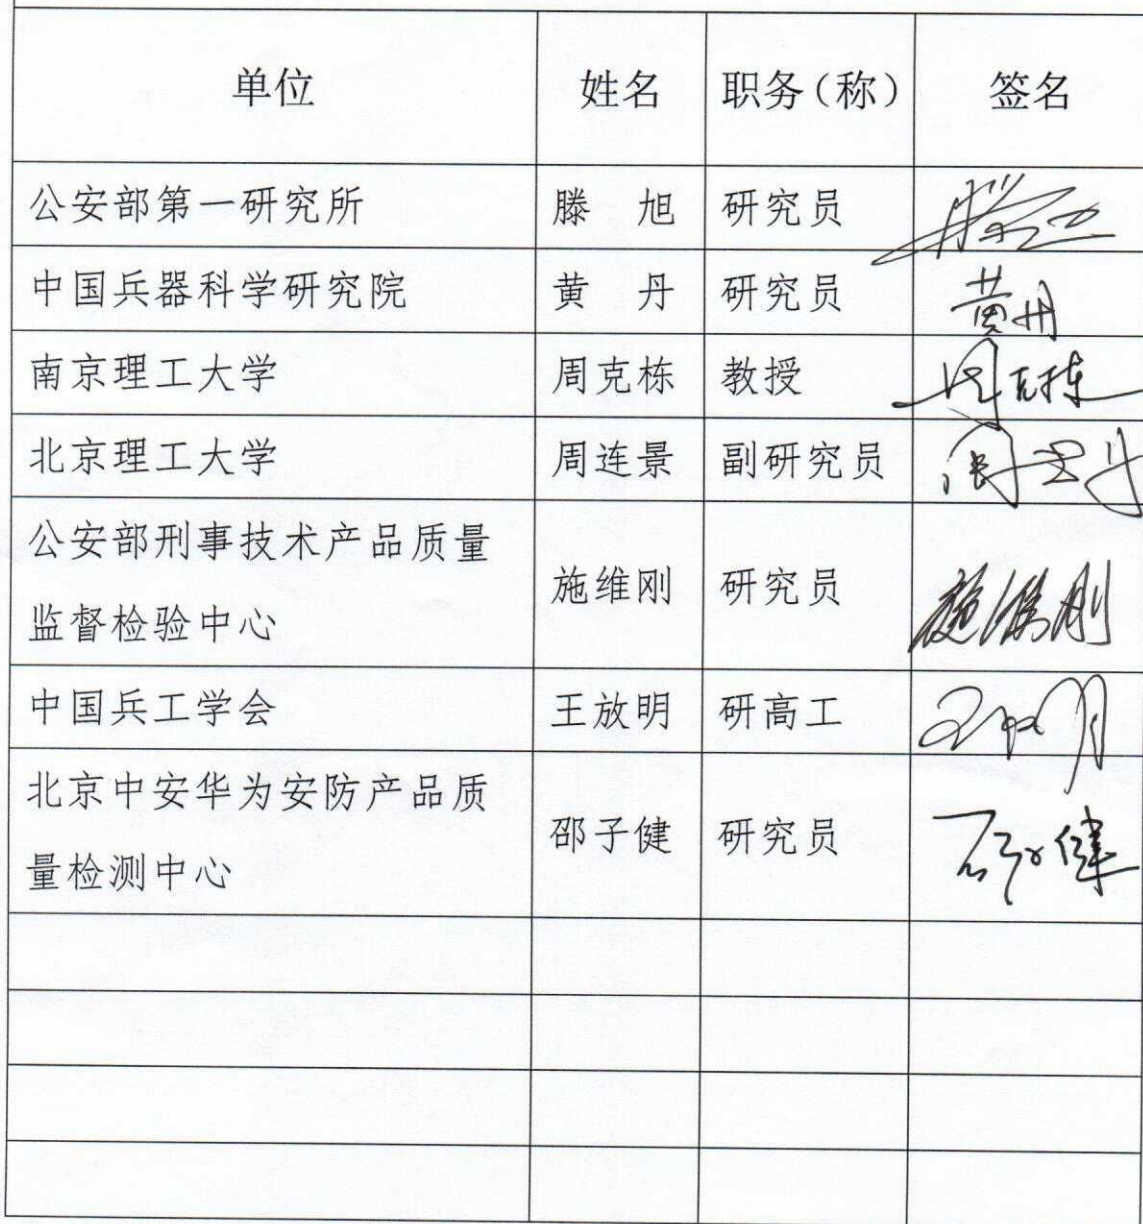 单位 姓名 职务(称) 签名
公安部第一研究所 滕 旭 研究员
中国兵器科学研究院 黄 丹 研究员 黄丹
南京理工大学 周克栋 教授 周克栋
北京理工大学 周连景 副研究员
公安部刑事技术产品质量
监督检验中心 施维刚 研究员 施维刚
中国兵工学会 王放明 研高工 王放明
北京中安华为安防产品质
量检测中心 邵子健 研究员 邵子健